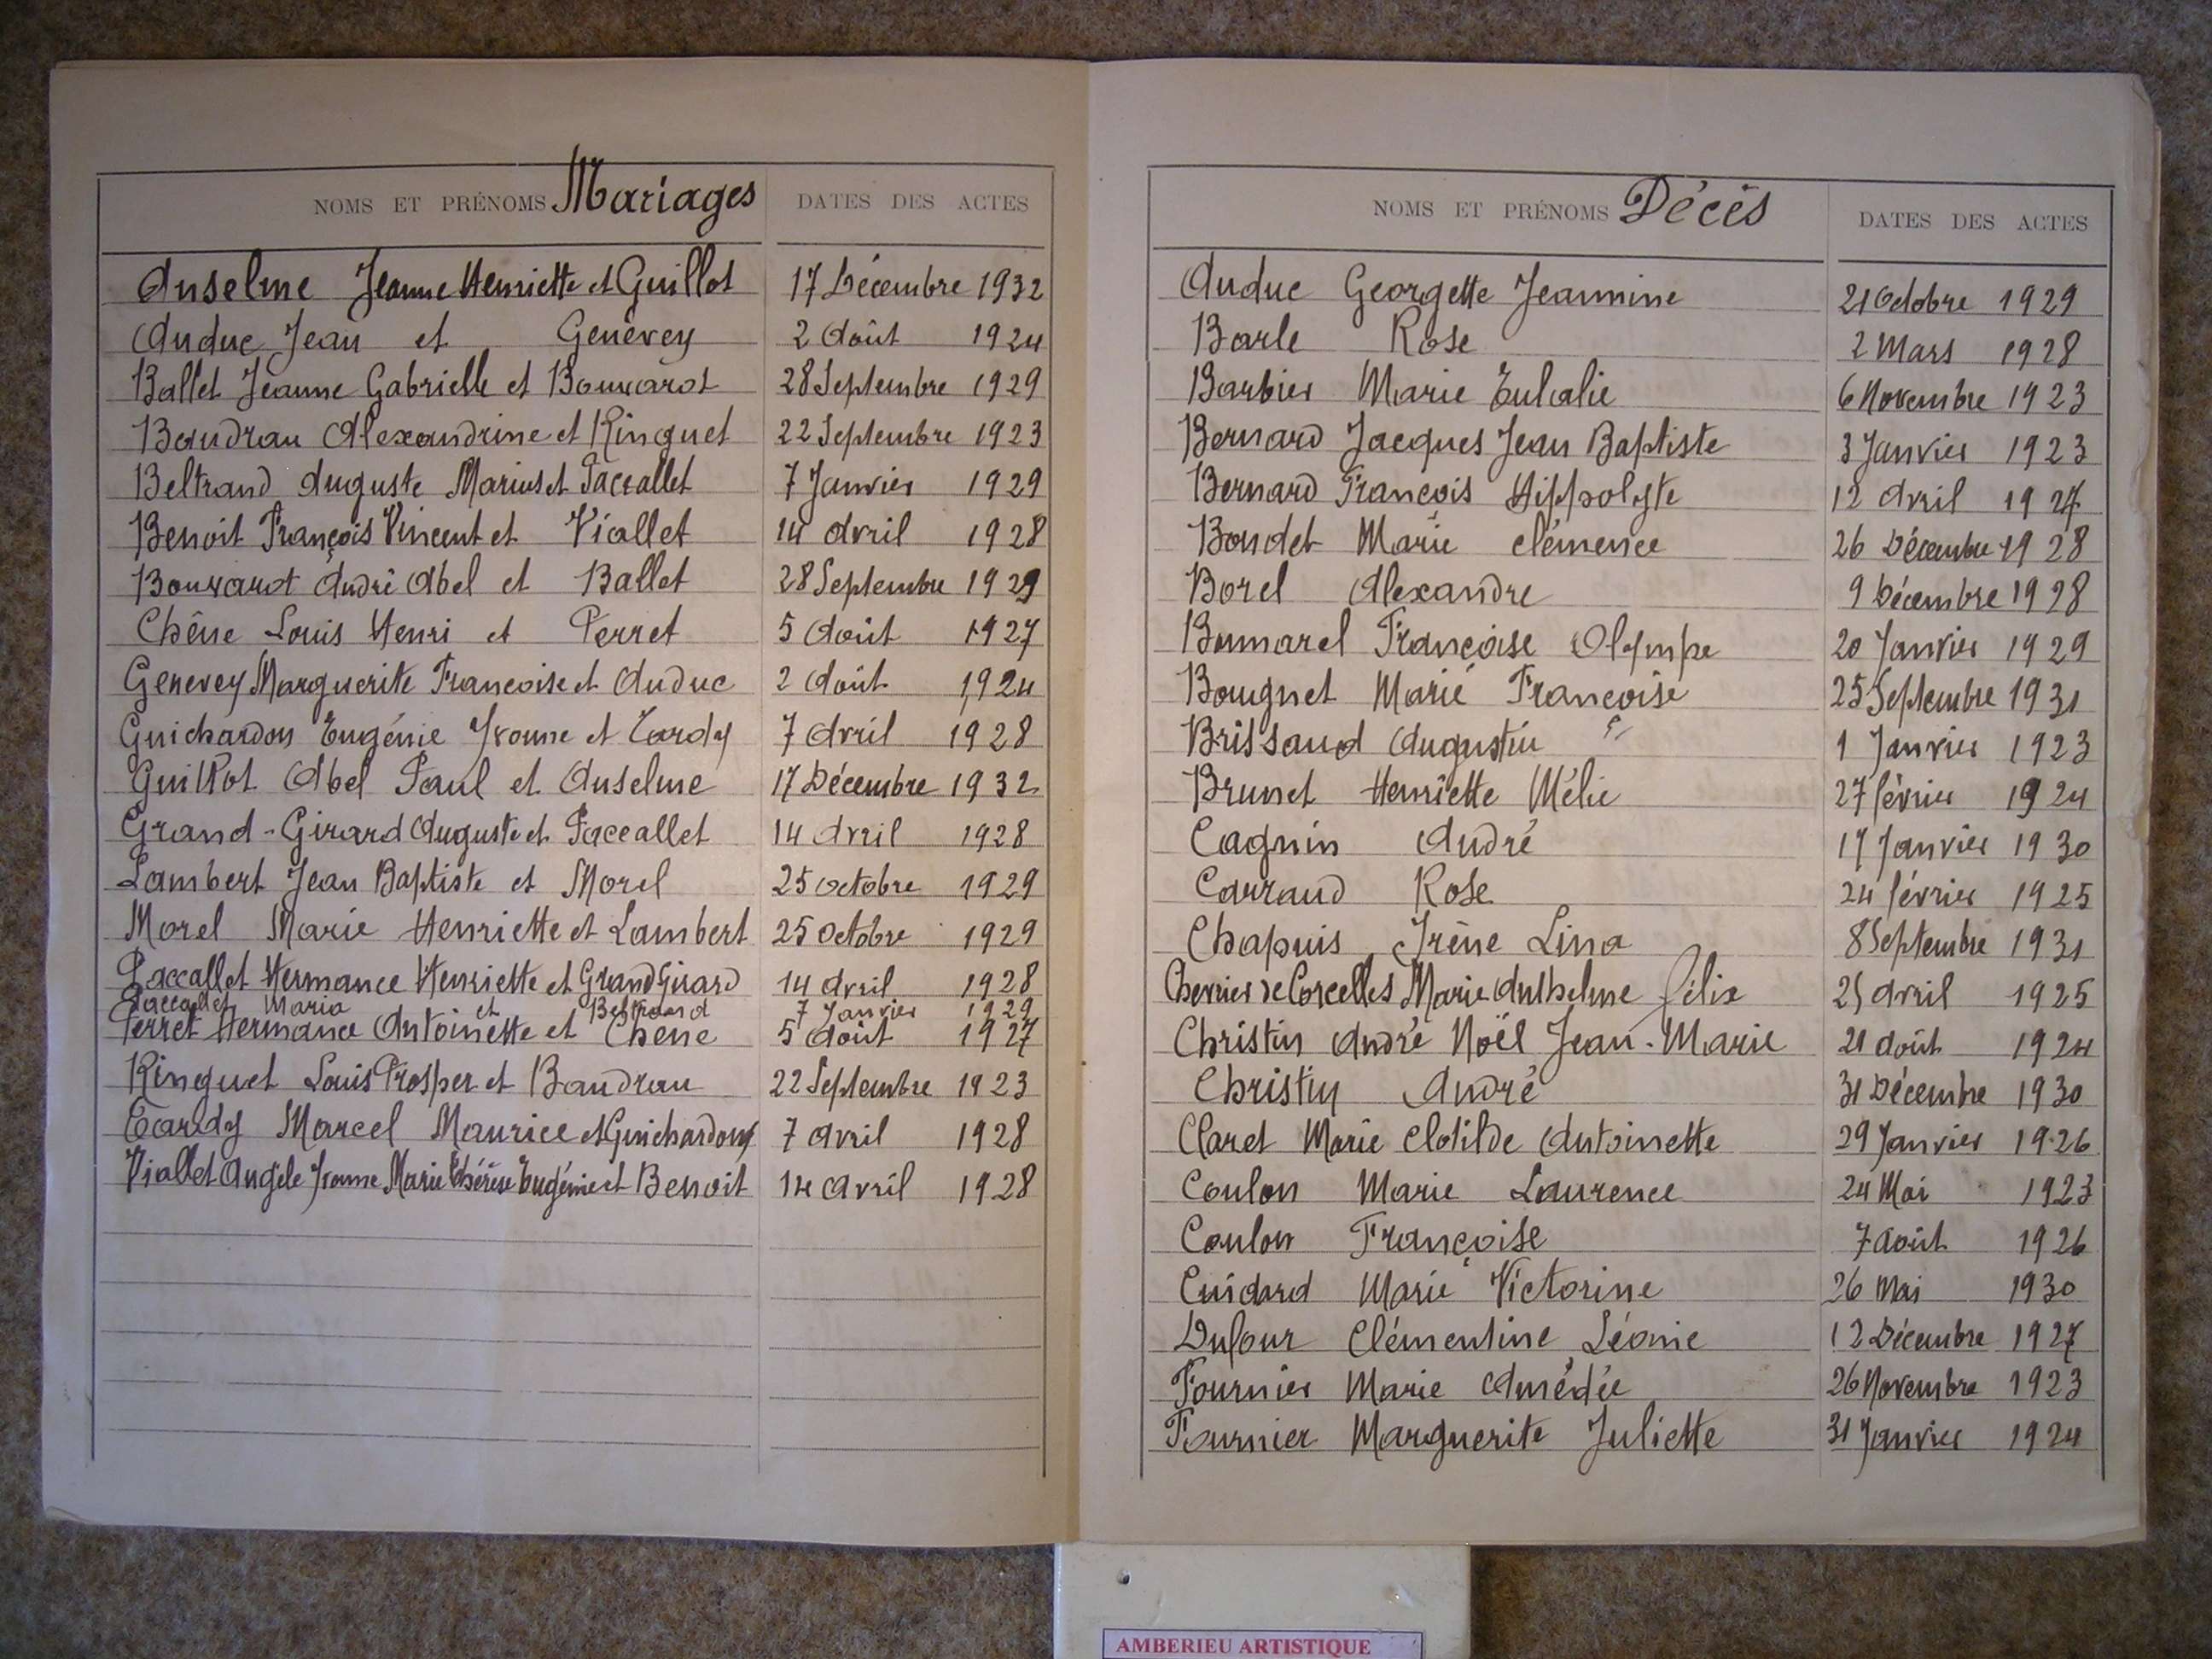 NOMS ET PRÉNOMS Mariages DATES DES ACTES
Anselme Jeanne Henriette et Guillot 17 Décembre 1932
Auduc Jean et Genevey 2 Août 1924
Ballet Jeanne Gabrielle et Bouvarot 28 Septembre 1929
Baudrau Alexandrine et Rinquet 22 Septembre 1923
Beltrand Auguste Marius et Paccallet 7 Janvier 1929
Benoit François Vincent et Viallet 14 Avril 1928
Bouvarot André Abel et Ballet 28 Septembre 1929
Chêne Louis Henri et Perret 5 Août 1927
Genevey Marguerite Francoise et Auduc 2 Août 1924
Guichardon Eugénie Yvonne et Tardy 7 Avril 1928
Guillot Abel Paul et Anselme 17 Décembre 1932
Grand-Girard Auguste et Paccallet 14 Avril 1928
Lambert Jean Baptiste et Morel 25 octobre 1929
Morel Marie Henriette et Lambert 25 Octobre 1929
Paccallet Hermance Henriette et Grand Girard 14 Avril 1928
Paccallet Maria et Beltrand 7 Janvier 1929
Perret Hermance Antoinette et Chene 5 Août 1927
Rinquet Louis Prosper et Baudrau 22 Septembre 1923
Tardy Marcel Maurice et Guichardon 7 Avril 1928
Viallet Angèle Yvonne Marie Thérèse Eugénie et Benoit 14 Avril 1928
NOMS ET PRÉNOMS Décès DATES DES ACTES
Auduc Georgette Jeannine 21 Octobre 1929
Barle Rose 2 Mars 1928
Barbier Marie Eulalie 6 Novembre 1923
Bernard Jacques Jean Baptiste 3 Janvier 1923
Bernard François Hippolyte 12 Avril 1927
Bondet Marie Clémence 26 Décembre 1928
Borel Alexandre 9 Décembre 1928
Bonmarel Françoise Olympe 20 Janvier 1929
Bouquet Marie Francoise 25 Septembre 1931
Brissaud Augustin 1 Janvier 1923
Brunet Henriette Mélie 27 février 1924
Cagnin André 17 Janvier 1930
Carraud Rose 24 février 1925
Chapuis Irène Lina 8 Septembre 1931
Chevrier de Corcelles Marie Anthelme Félix 25 Avril 1925
Christin André Noël Jean-Marie 21 Août 1924
Christin André 31 Décembre 1930
Claret Marie Clotilde Antoinette 29 Janvier 1926
Coulon Marie Laurence 24 Mai 1923
Coulon Françoise 7 Août 1926
Cuidard Marie Victorine 26 Mai 1930
Dufour Clémentine Léonie 12 Décembre 1927
Fournier Marie Amédée 26 Novembre 1923
Fournier Marguerite Juliette 31 Janvier 1924
AMBERIEU ARTISTIQUE